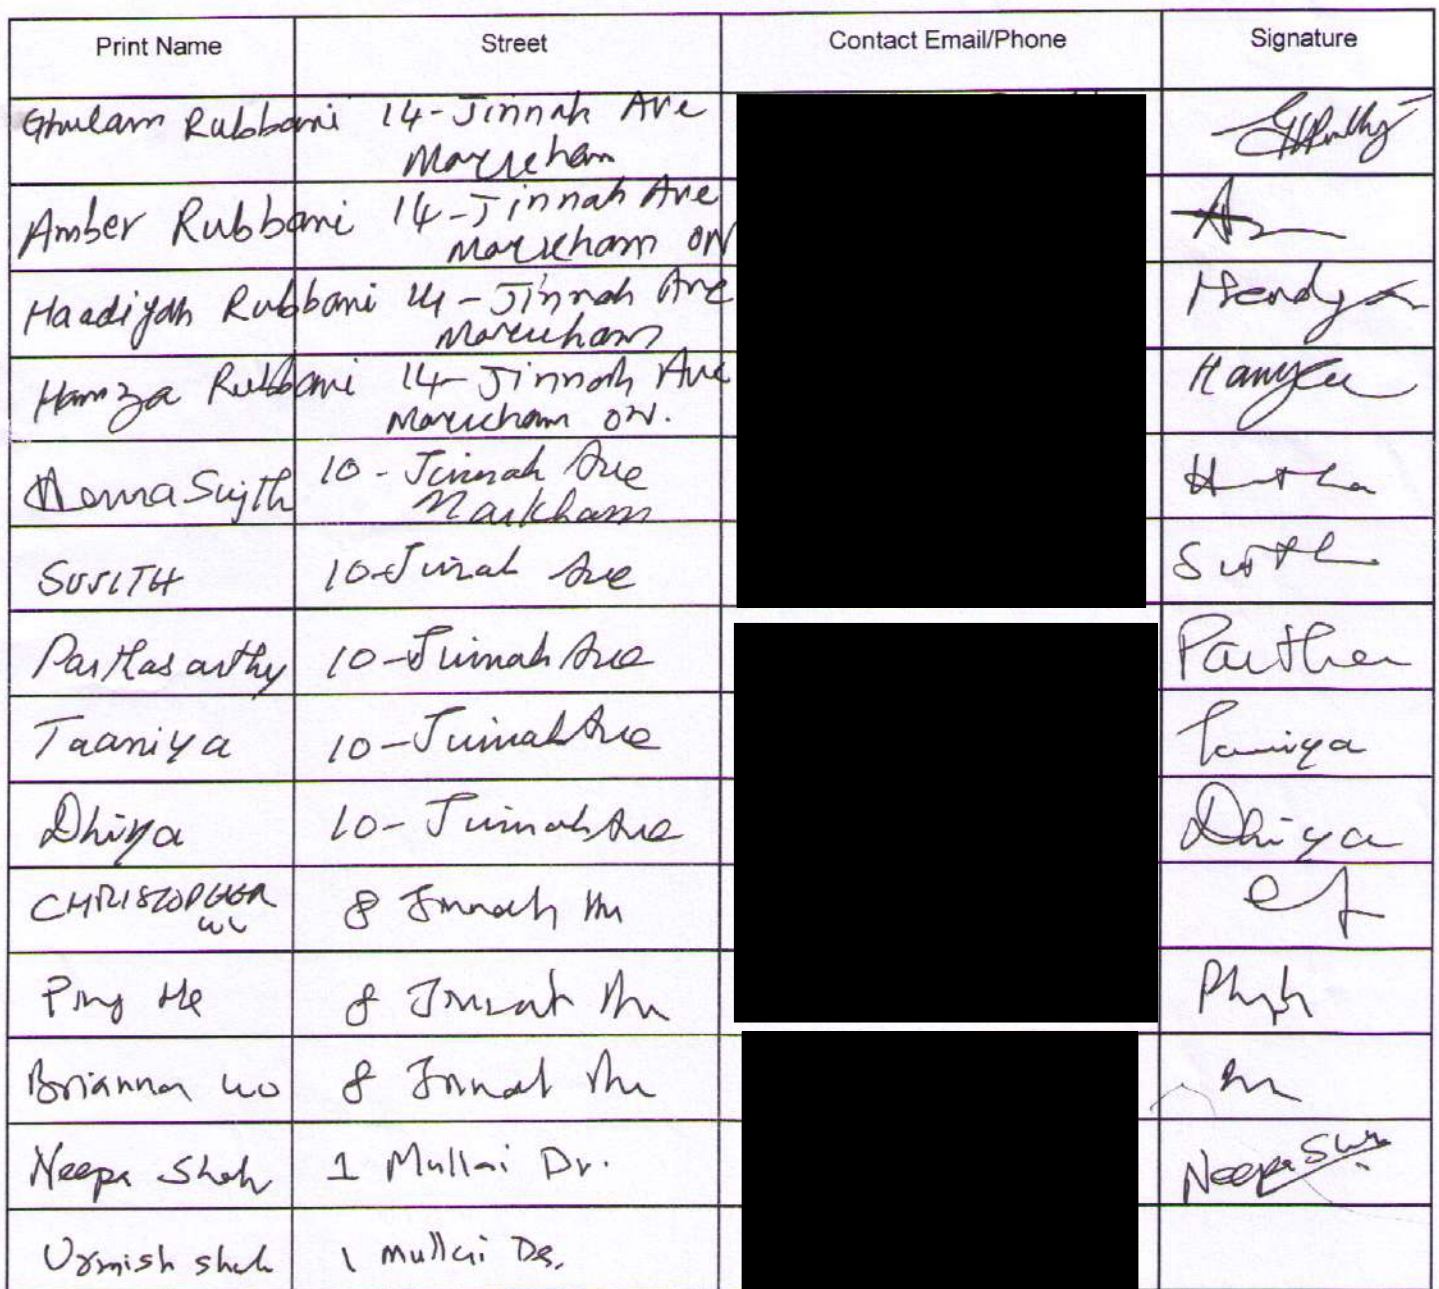 Print Name Street Contact Email/Phone Signature
Ghulam Rubbani 14-Jinnah Ave
Markham
Amber Rubbani 14-Jinnah Ave
Markham ON
Haadiyah Rubbani 14-Jinnah Ave
Markham
Hamza Rubbani 14-Jinnah Ave Hamza
Markham ON.
Sujith 10-Jinnah Ave
Markham
SUJITH 10-Jinnah Ave
Parthasarthy 10-Jinnah Ave Partha
Taaniya 10-Jinnah Ave Taniya
Dhiya 10-Jinnah Ave Dhiya
CHRISTOPHER 8 Jinnah
Ping He 8 Jinnah
Brianna Wo 8 Jinnah
Neepa Shah 1 Mullai Dr. Neepa Shah
Urmish Shah 1 Mullai Dr.